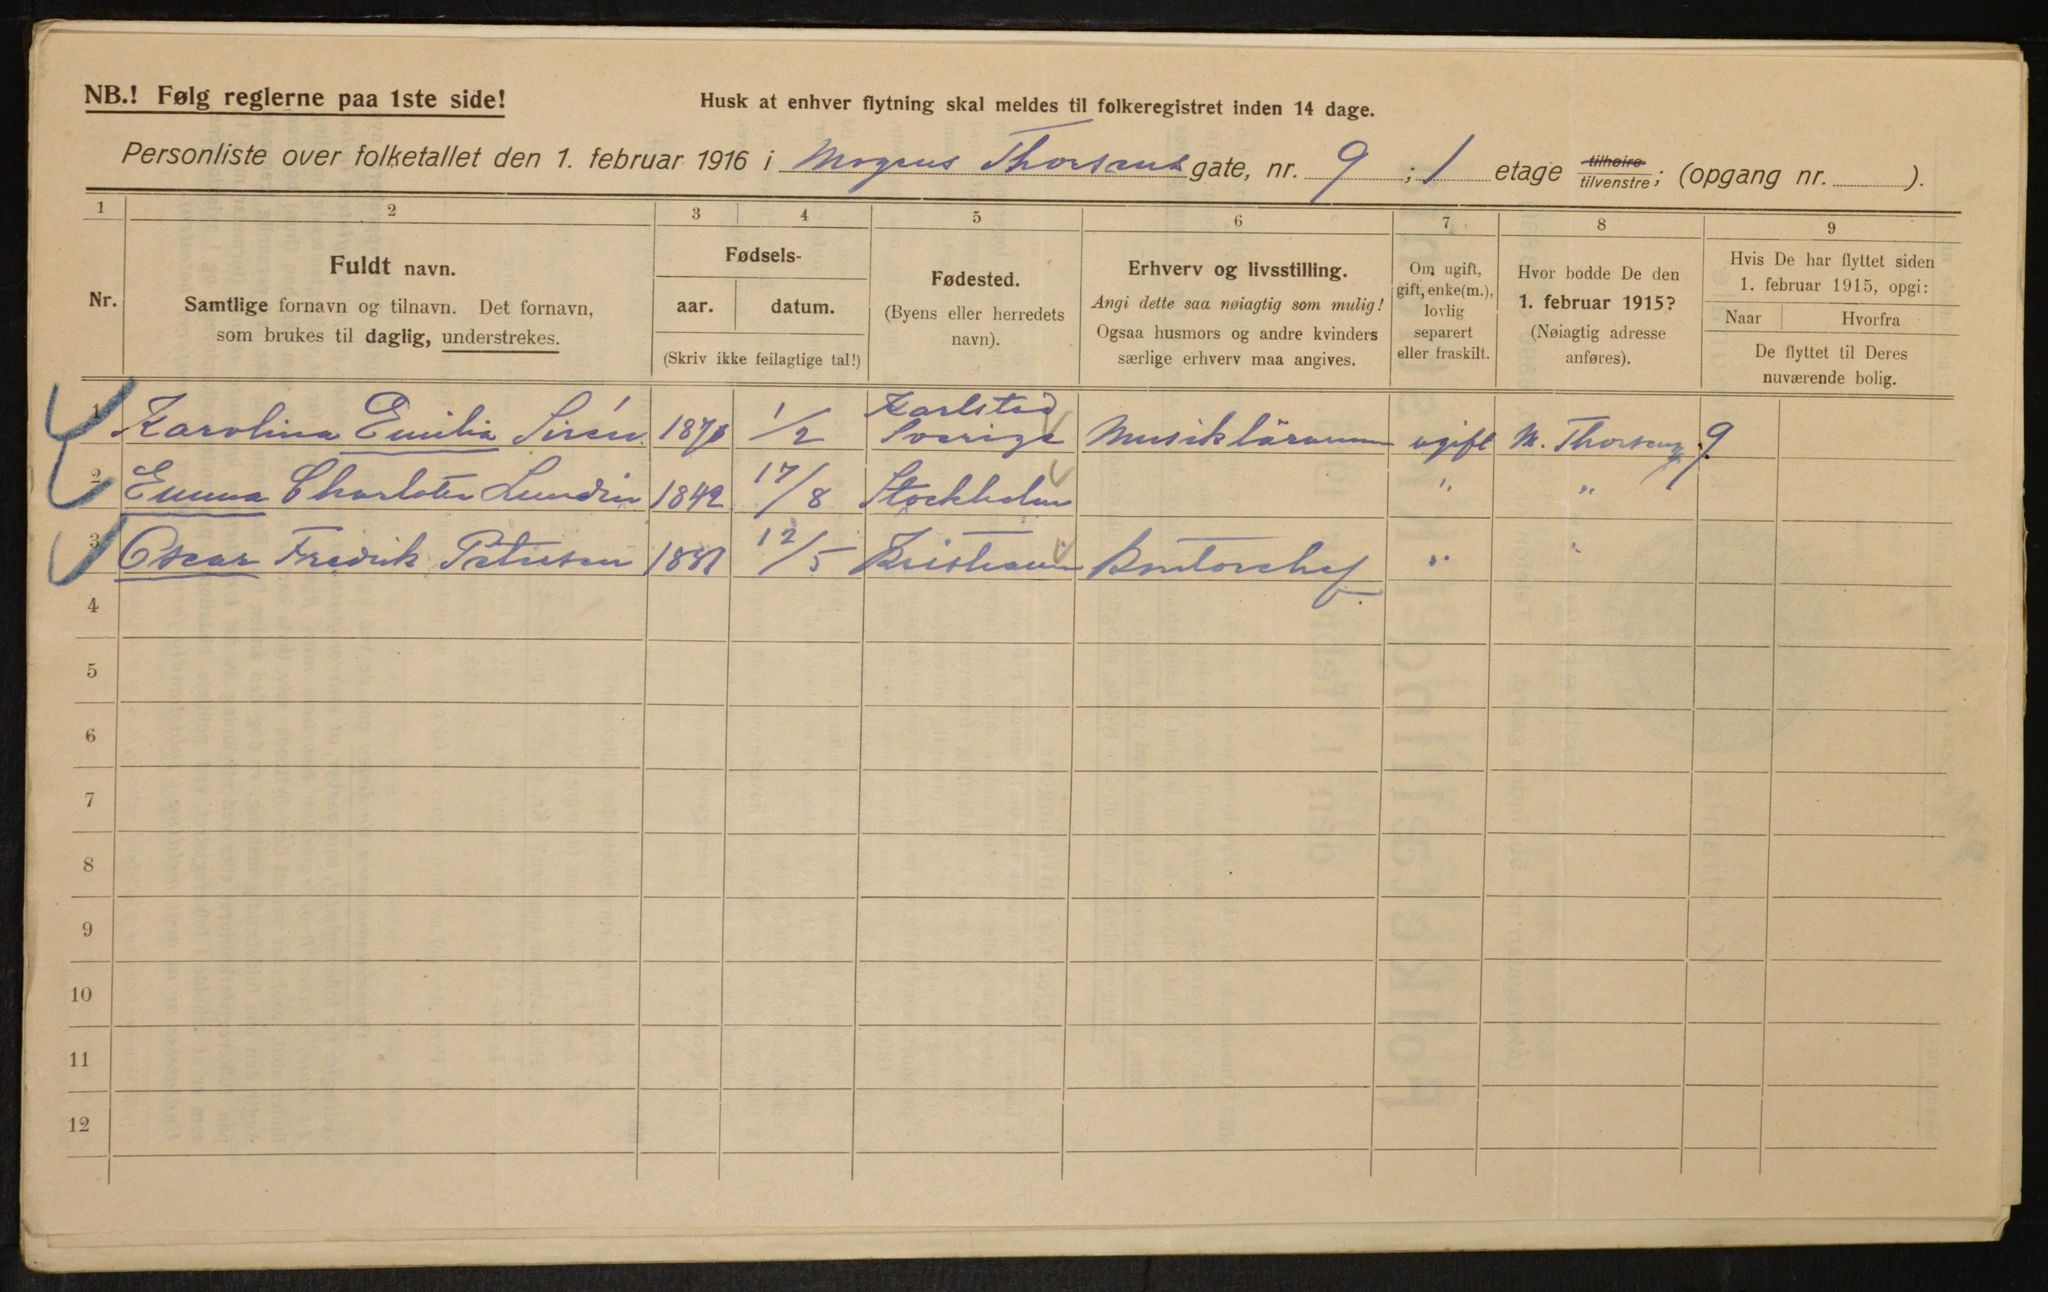 NB.! Følg reglerne paa 1ste side!
Husk at enhver flytning skal meldes til folkeregistret inden 14 dage.
Personliste over folketallet den 1. februar 1916 i Mogens Thorsens gate, nr. 9 ; 1 etage tilhøire tilvenstre; (opgang nr. ).
1 2 3 4 5 6 7 8 9
Nr.
Fuldt navn.
Samtlige fornavn og tilnavn. Det fornavn,
som brukes til daglig, understrekes.
Fødsels-
aar. datum.
(Skriv ikke feilagtige tal!)
Fødested.
(Byens eller herredets
navn).
Erhverv og livsstilling.
Angi dette saa nøiagtig som mulig!
Ogsaa husmors og andre kvinders
særlige erhverv maa angives.
Om ugift,
gift, enke(m.),
lovlig
separert
eller fraskilt.
Hvor bodde De den
1. februar 1915?
(Nøiagtig adresse
anføres).
Hvis De har flyttet siden
1. februar 1915, opgi:
Naar Hvorfra
De flyttet til Deres
nuværende bolig.
1 Karolina Emilia Sirén. 1/2 Karlstad Sverige Musiklärarinna ugift M. Thorsensg 9.
2 Emma Charlotta Lundin 1842 17/8 Stockholm " "
3 Oscar Fredrik Petersen 1881 12/5 Kristiania Kontorchef " "
4
5
6
7
8
9
10
11
12